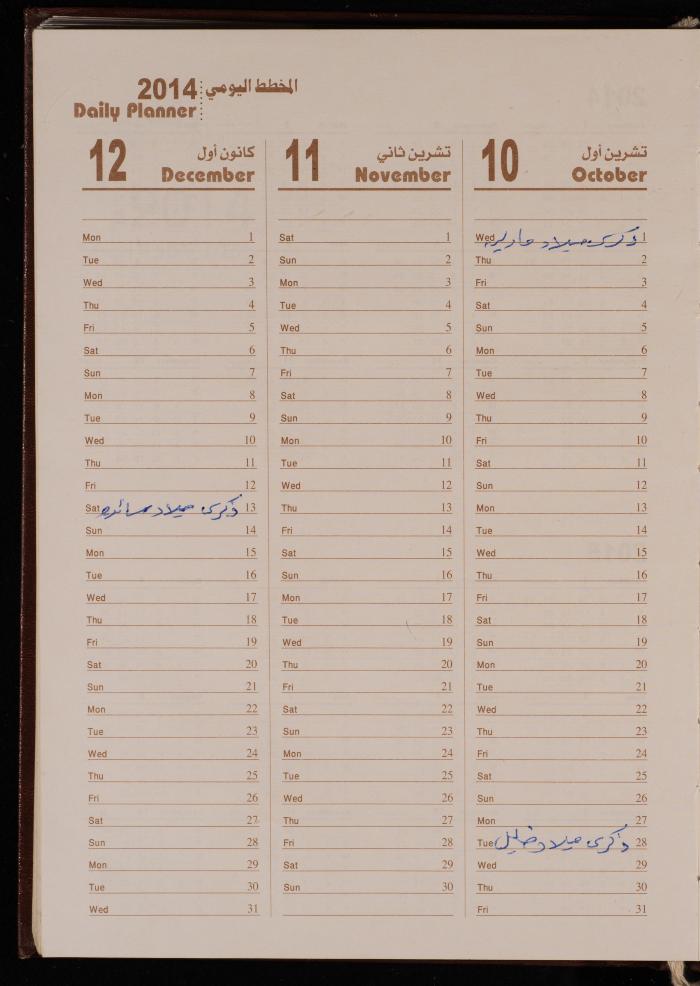 المخطط اليومي 2014
Daily Planner
10 تشرين أول
October
Wed ذكرى ميلاد 1
Thu 2
Fri 3
Sat 4
Sun 5
Mon 6
Tue 7
Wed 8
Thu 9
Fri 10
Sat 11
Sun 12
Mon 13
Tue 14
Wed 15
Thu 16
Fri 17
Sat 18
Sun 19
Mon 20
Tue 21
Wed 22
Thu 23
Fri 24
Sat 25
Sun 26
Mon 27
Tue ذكرى ميلاد خليل 28
Wed 29
Thu 30
Fri 31
11 تشرين ثاني
November
Sat 1
Sun 2
Mon 3
Tue 4
Wed 5
Thu 6
Fri 7
Sat 8
Sun 9
Mon 10
Tue 11
Wed 12
Thu 13
Fri 14
Sat 15
Sun 16
Mon 17
Tue 18
Wed 19
Thu 20
Fri 21
Sat 22
Sun 23
Mon 24
Tue 25
Wed 26
Thu 27
Fri 28
Sat 29
Sun 30
12 كانون أول
December
Mon 1
Tue 2
Wed 3
Thu 4
Fri 5
Sat 6
Sun 7
Mon 8
Tue 9
Wed 10
Thu 11
Fri 12
Sat ذكرى ميلاد سائده 13
Sun 14
Mon 15
Tue 16
Wed 17
Thu 18
Fri 19
Sat 20
Sun 21
Mon 22
Tue 23
Wed 24
Thu 25
Fri 26
Sat 27
Sun 28
Mon 29
Tue 30
Wed 31